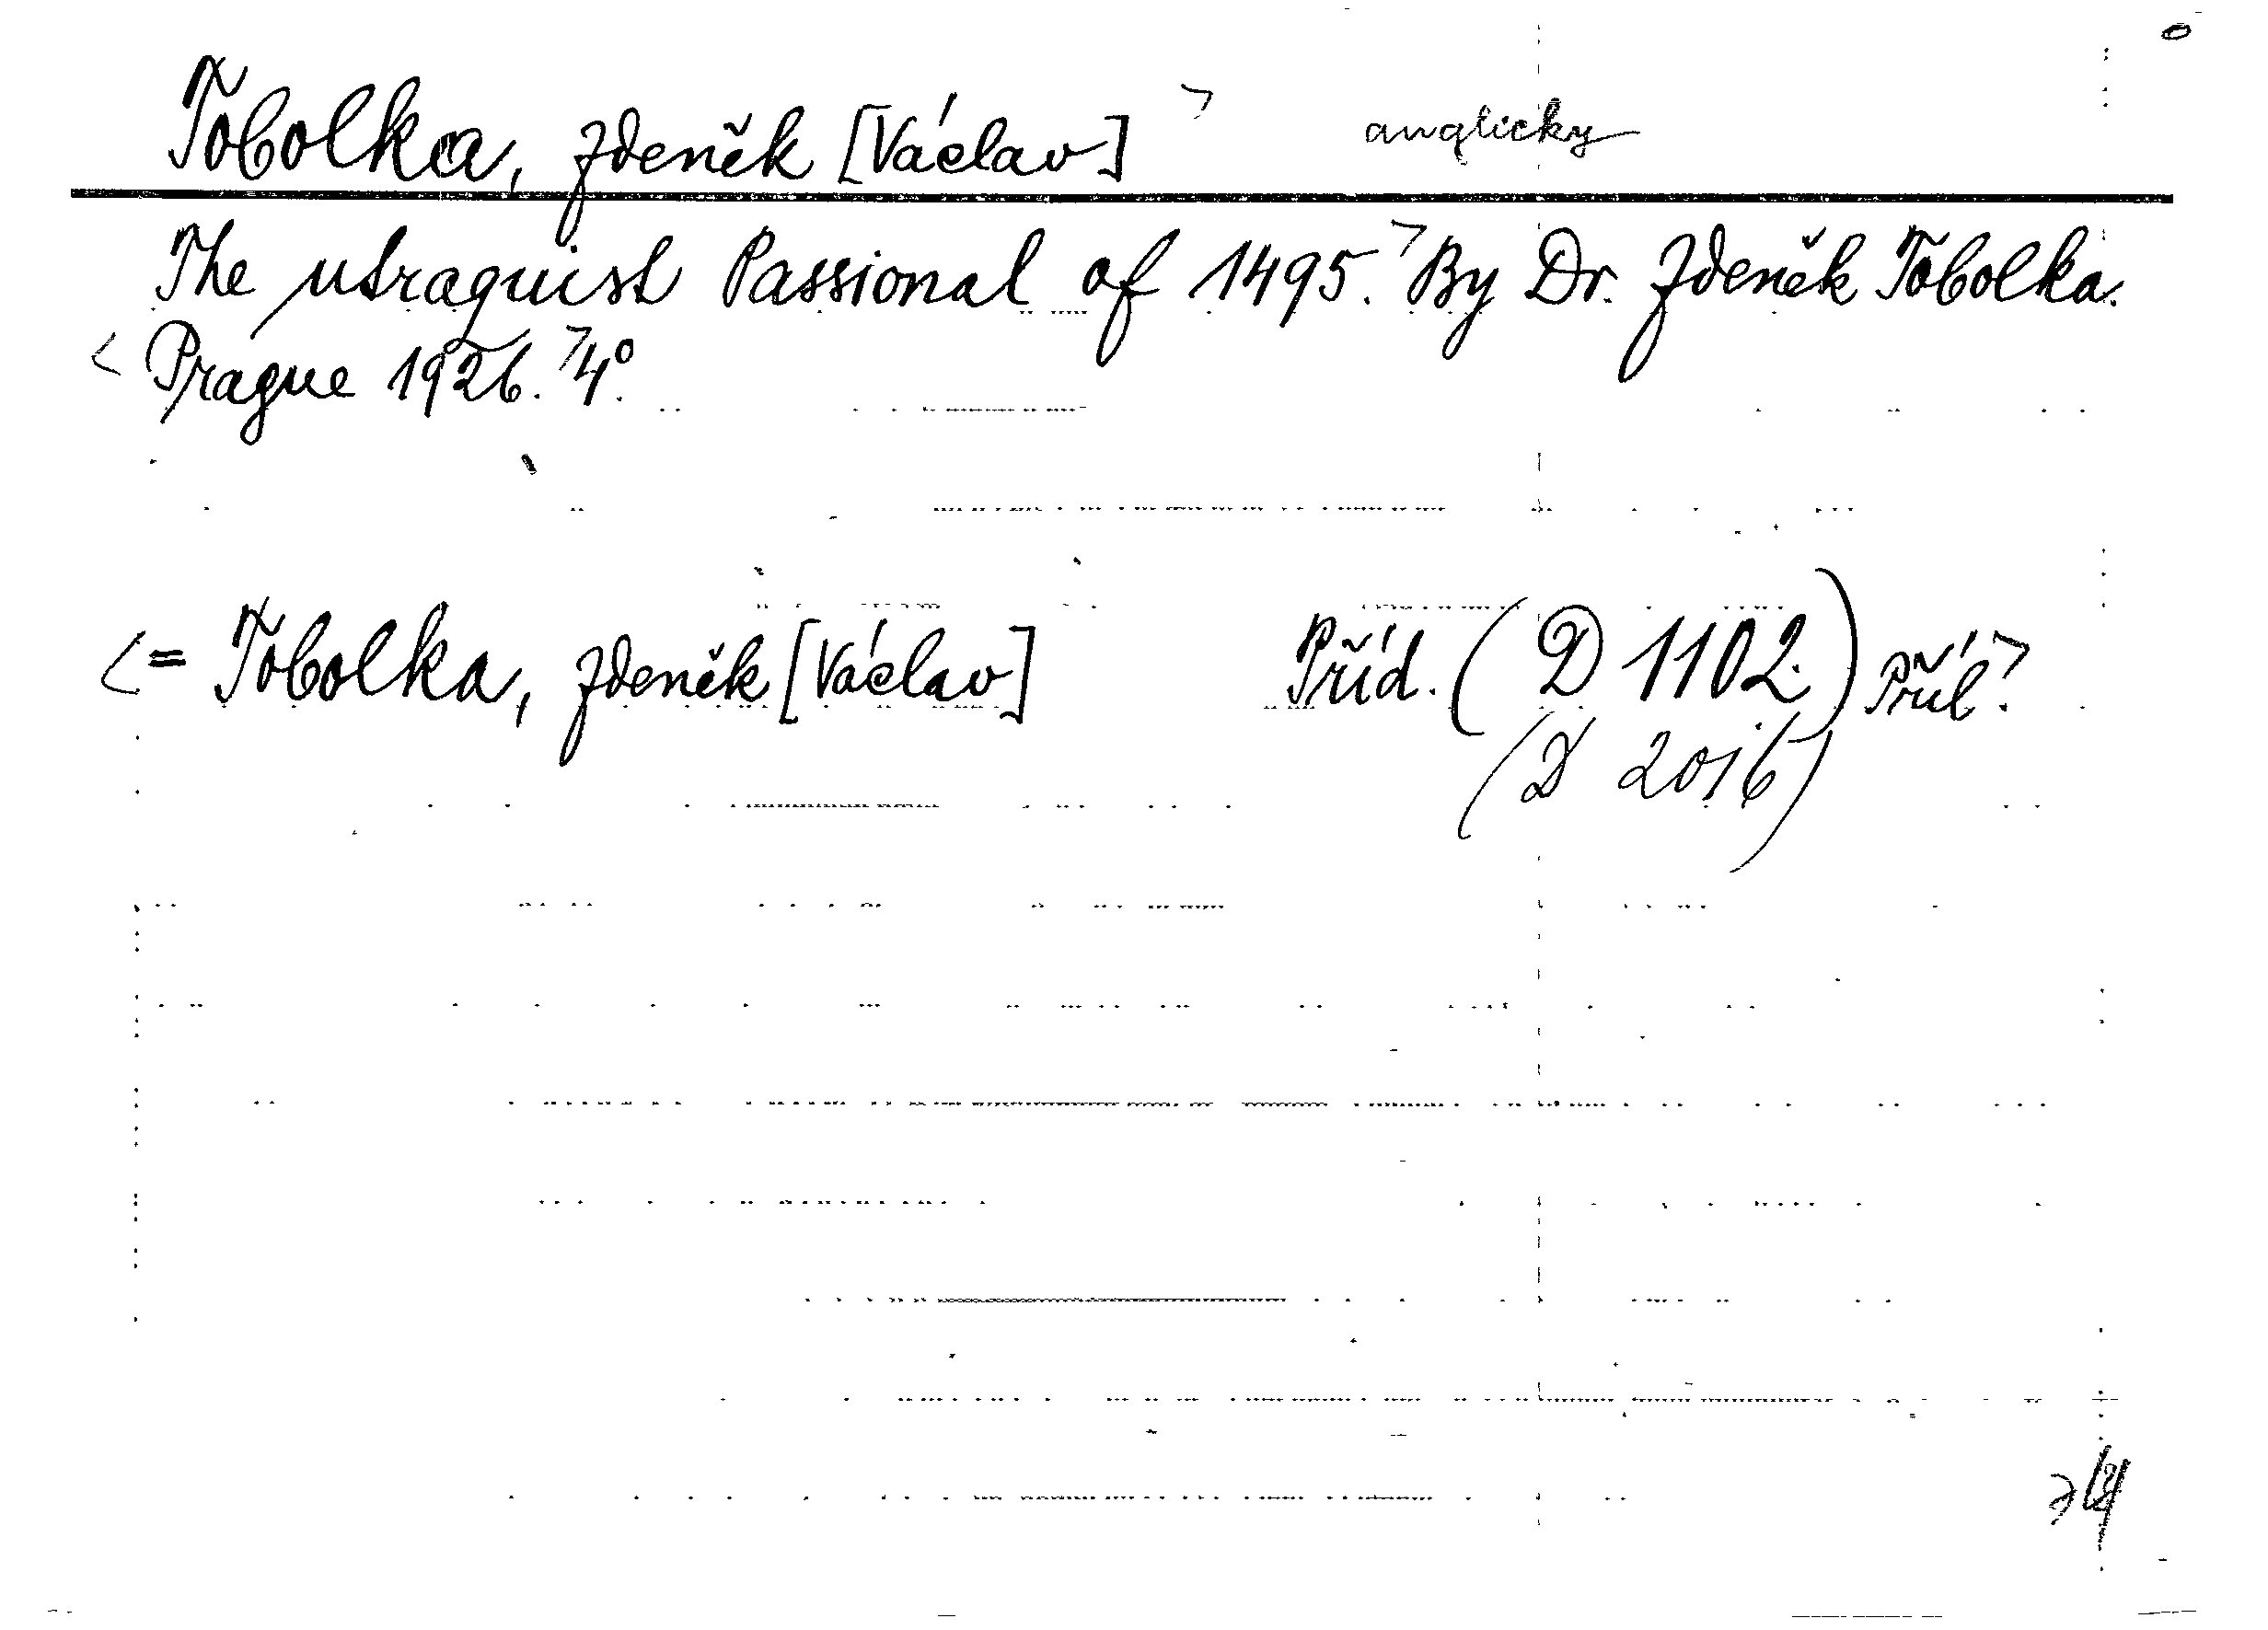 Tobolka, Zdeněk [Václav] > anglicky
The utraquist Passional of 1495. > By Dr. Zdeněk Tobolka.
< Prague 1926. > 4°.
< = Tobolka, Zdeněk [Václav] Příd. (D 1102.) Příl. >
(D 2016)